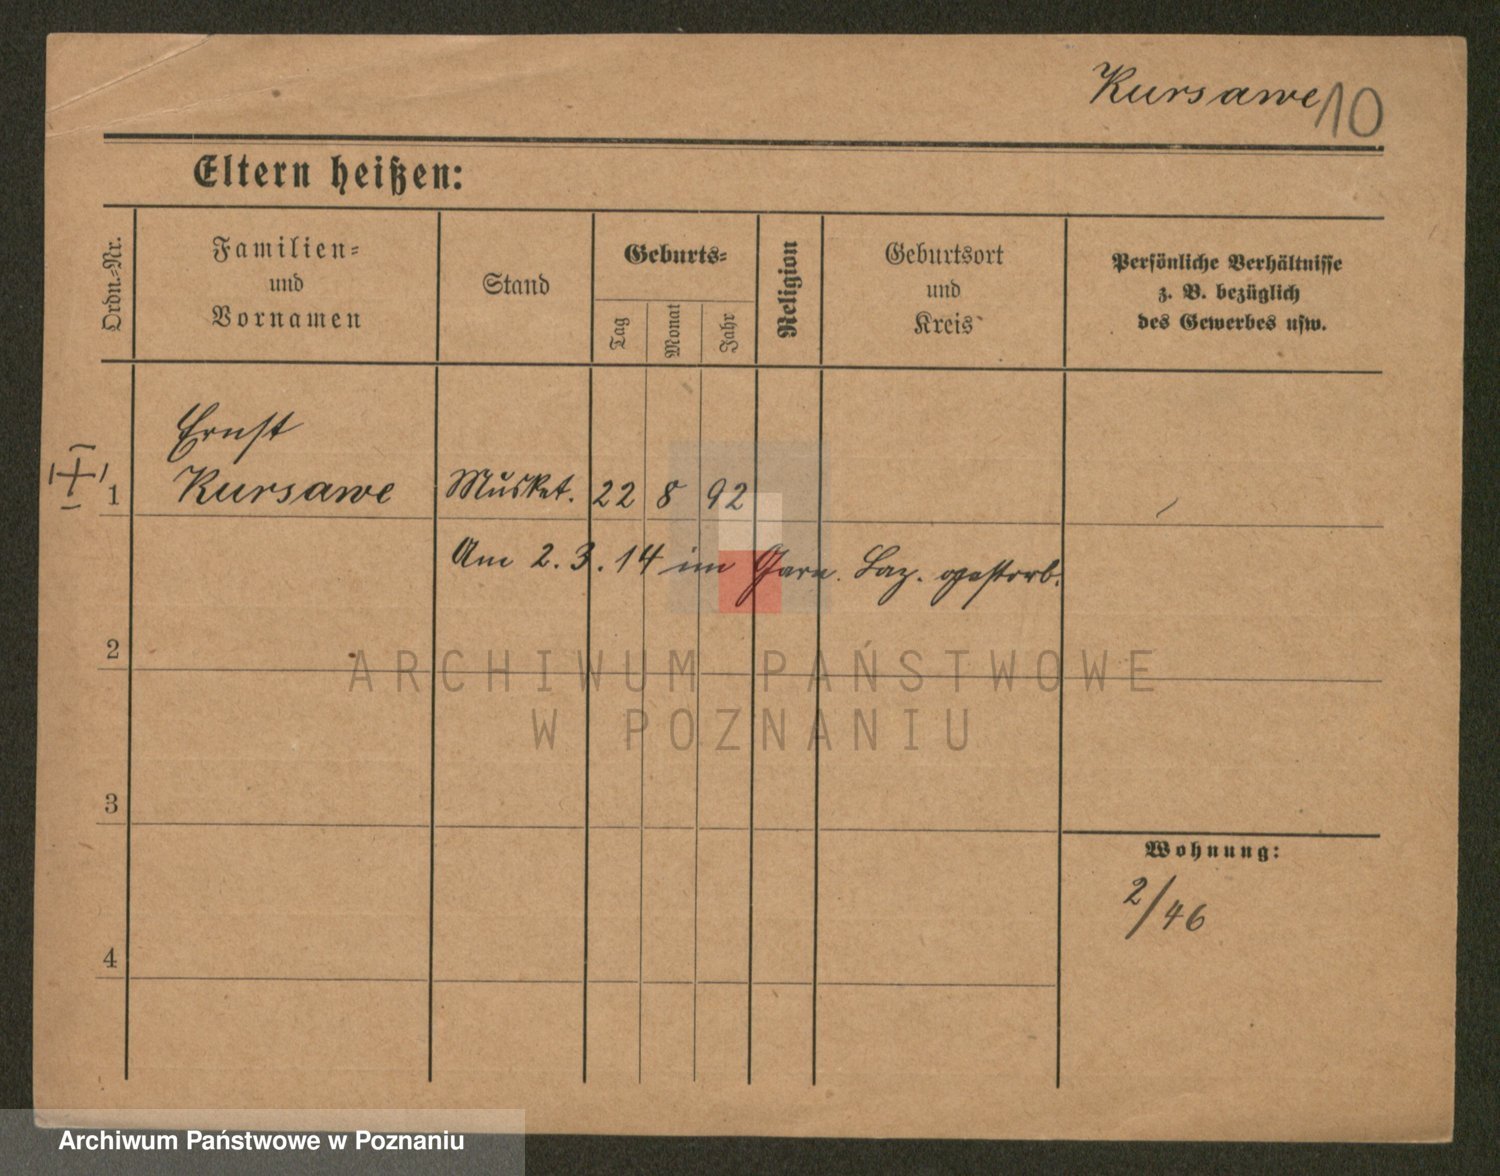 Kursawe 10
Eltern heißen:
Ordn.-Nr.
Familien-
und
Vornamen
Stand
Geburts-
Tag
Monat
Jahr
Religion
Geburtsort
und
Kreis
Persönliche Verhältnisse
z. B. bezüglich
des Gewerbes usw.
Ernst
1 Kursawe Musket. 22 8 92
Am 2. 3. 14 im Garn. Laz. gestorb.
2
ARCHIWUM PAŃSTWOWE
W POZNANIU
3
Wohnung:
2/46
4
Archiwum Państwowe w Poznaniu